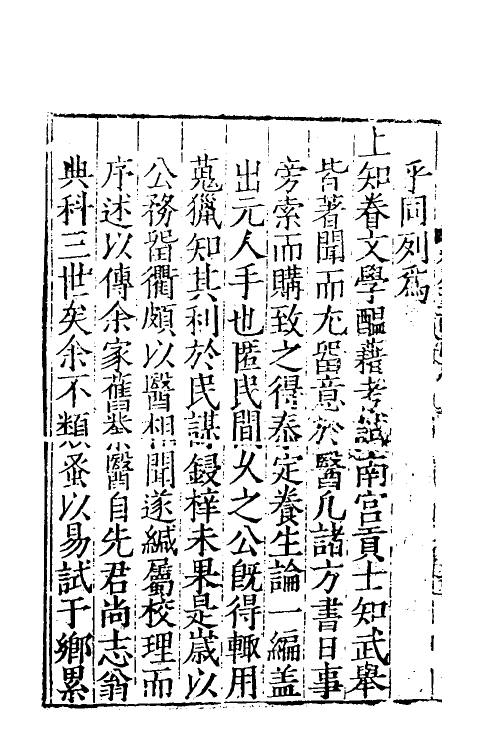 乎同列爲
上知眷文學醖藉考試南宫貢士知武舉
皆著聞而尤留意於醫凡諸方書日事
旁索而購致之得泰定養生論一編盖
出元人手也匿民間乆之公旣得輙用
蒐獵知其利於民謀鋟梓未果是嵗以
公務留衢頗以醫相聞遂緘屬校理而
序述以傳余家舊業醫自先君尚志翁
典科三世矣余不類蚤以易試于鄉累